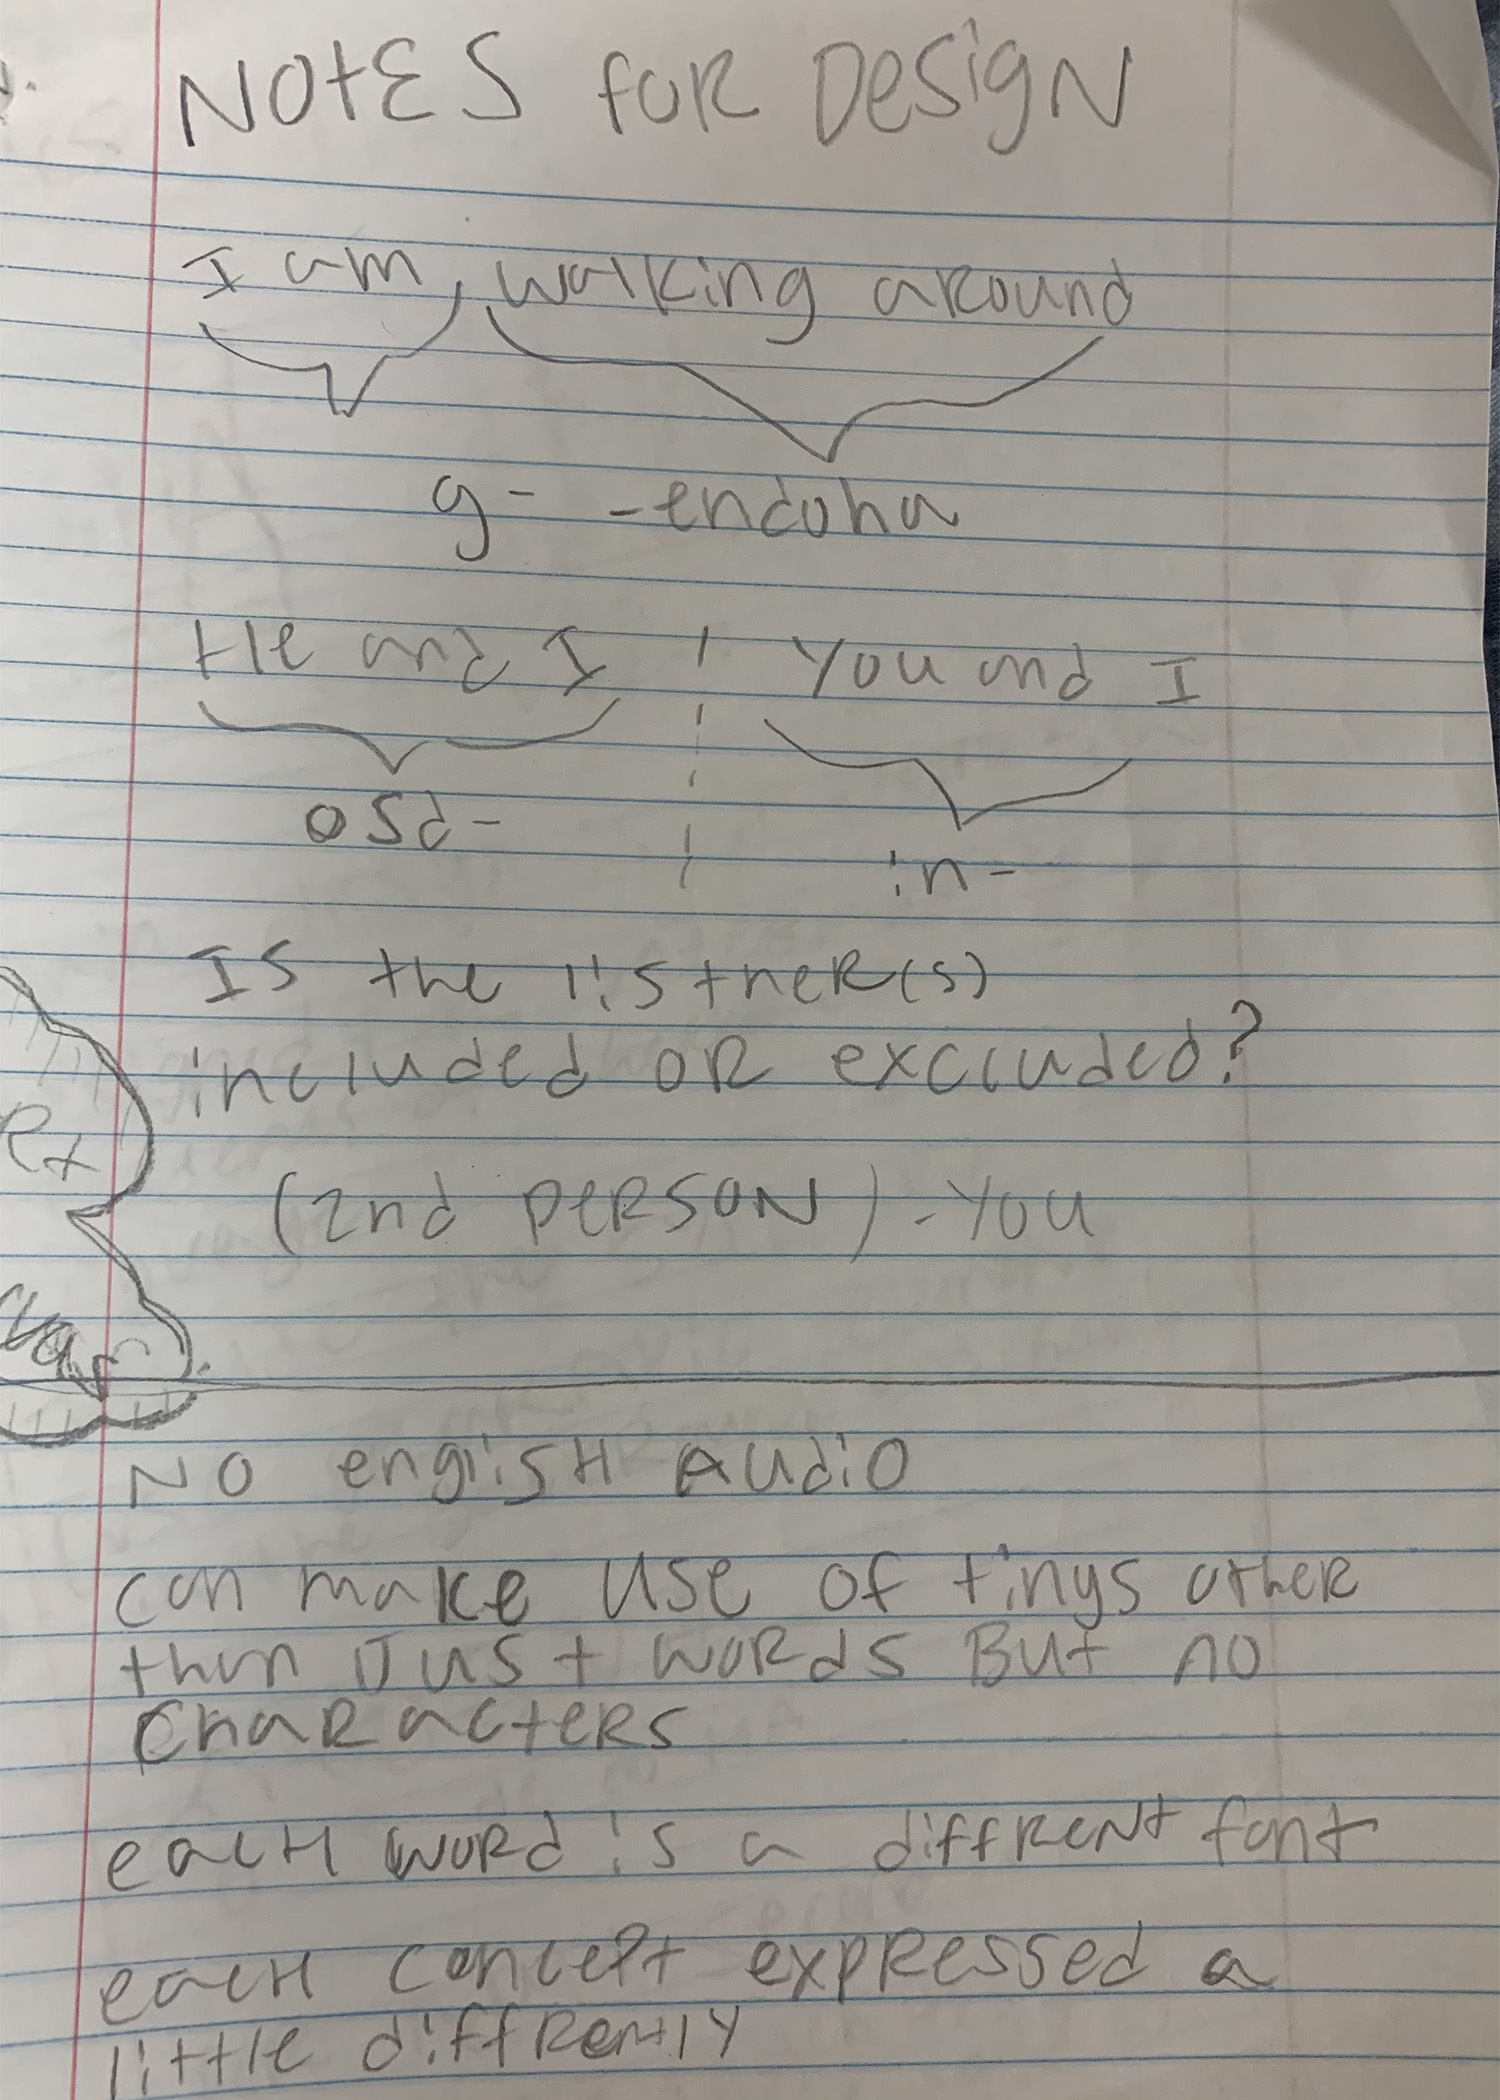 NOtES foR DesigN
I am, walking around
g- -endoha
He and I You and I
osd-
in-
Is the listner(s)
included OR excluded?
(2nd PERSON) - You
No english Audio
can make use of tings other
than Just words But no
CharacteRs
each word is a diffrent font
each concept expressed a
little diffrently